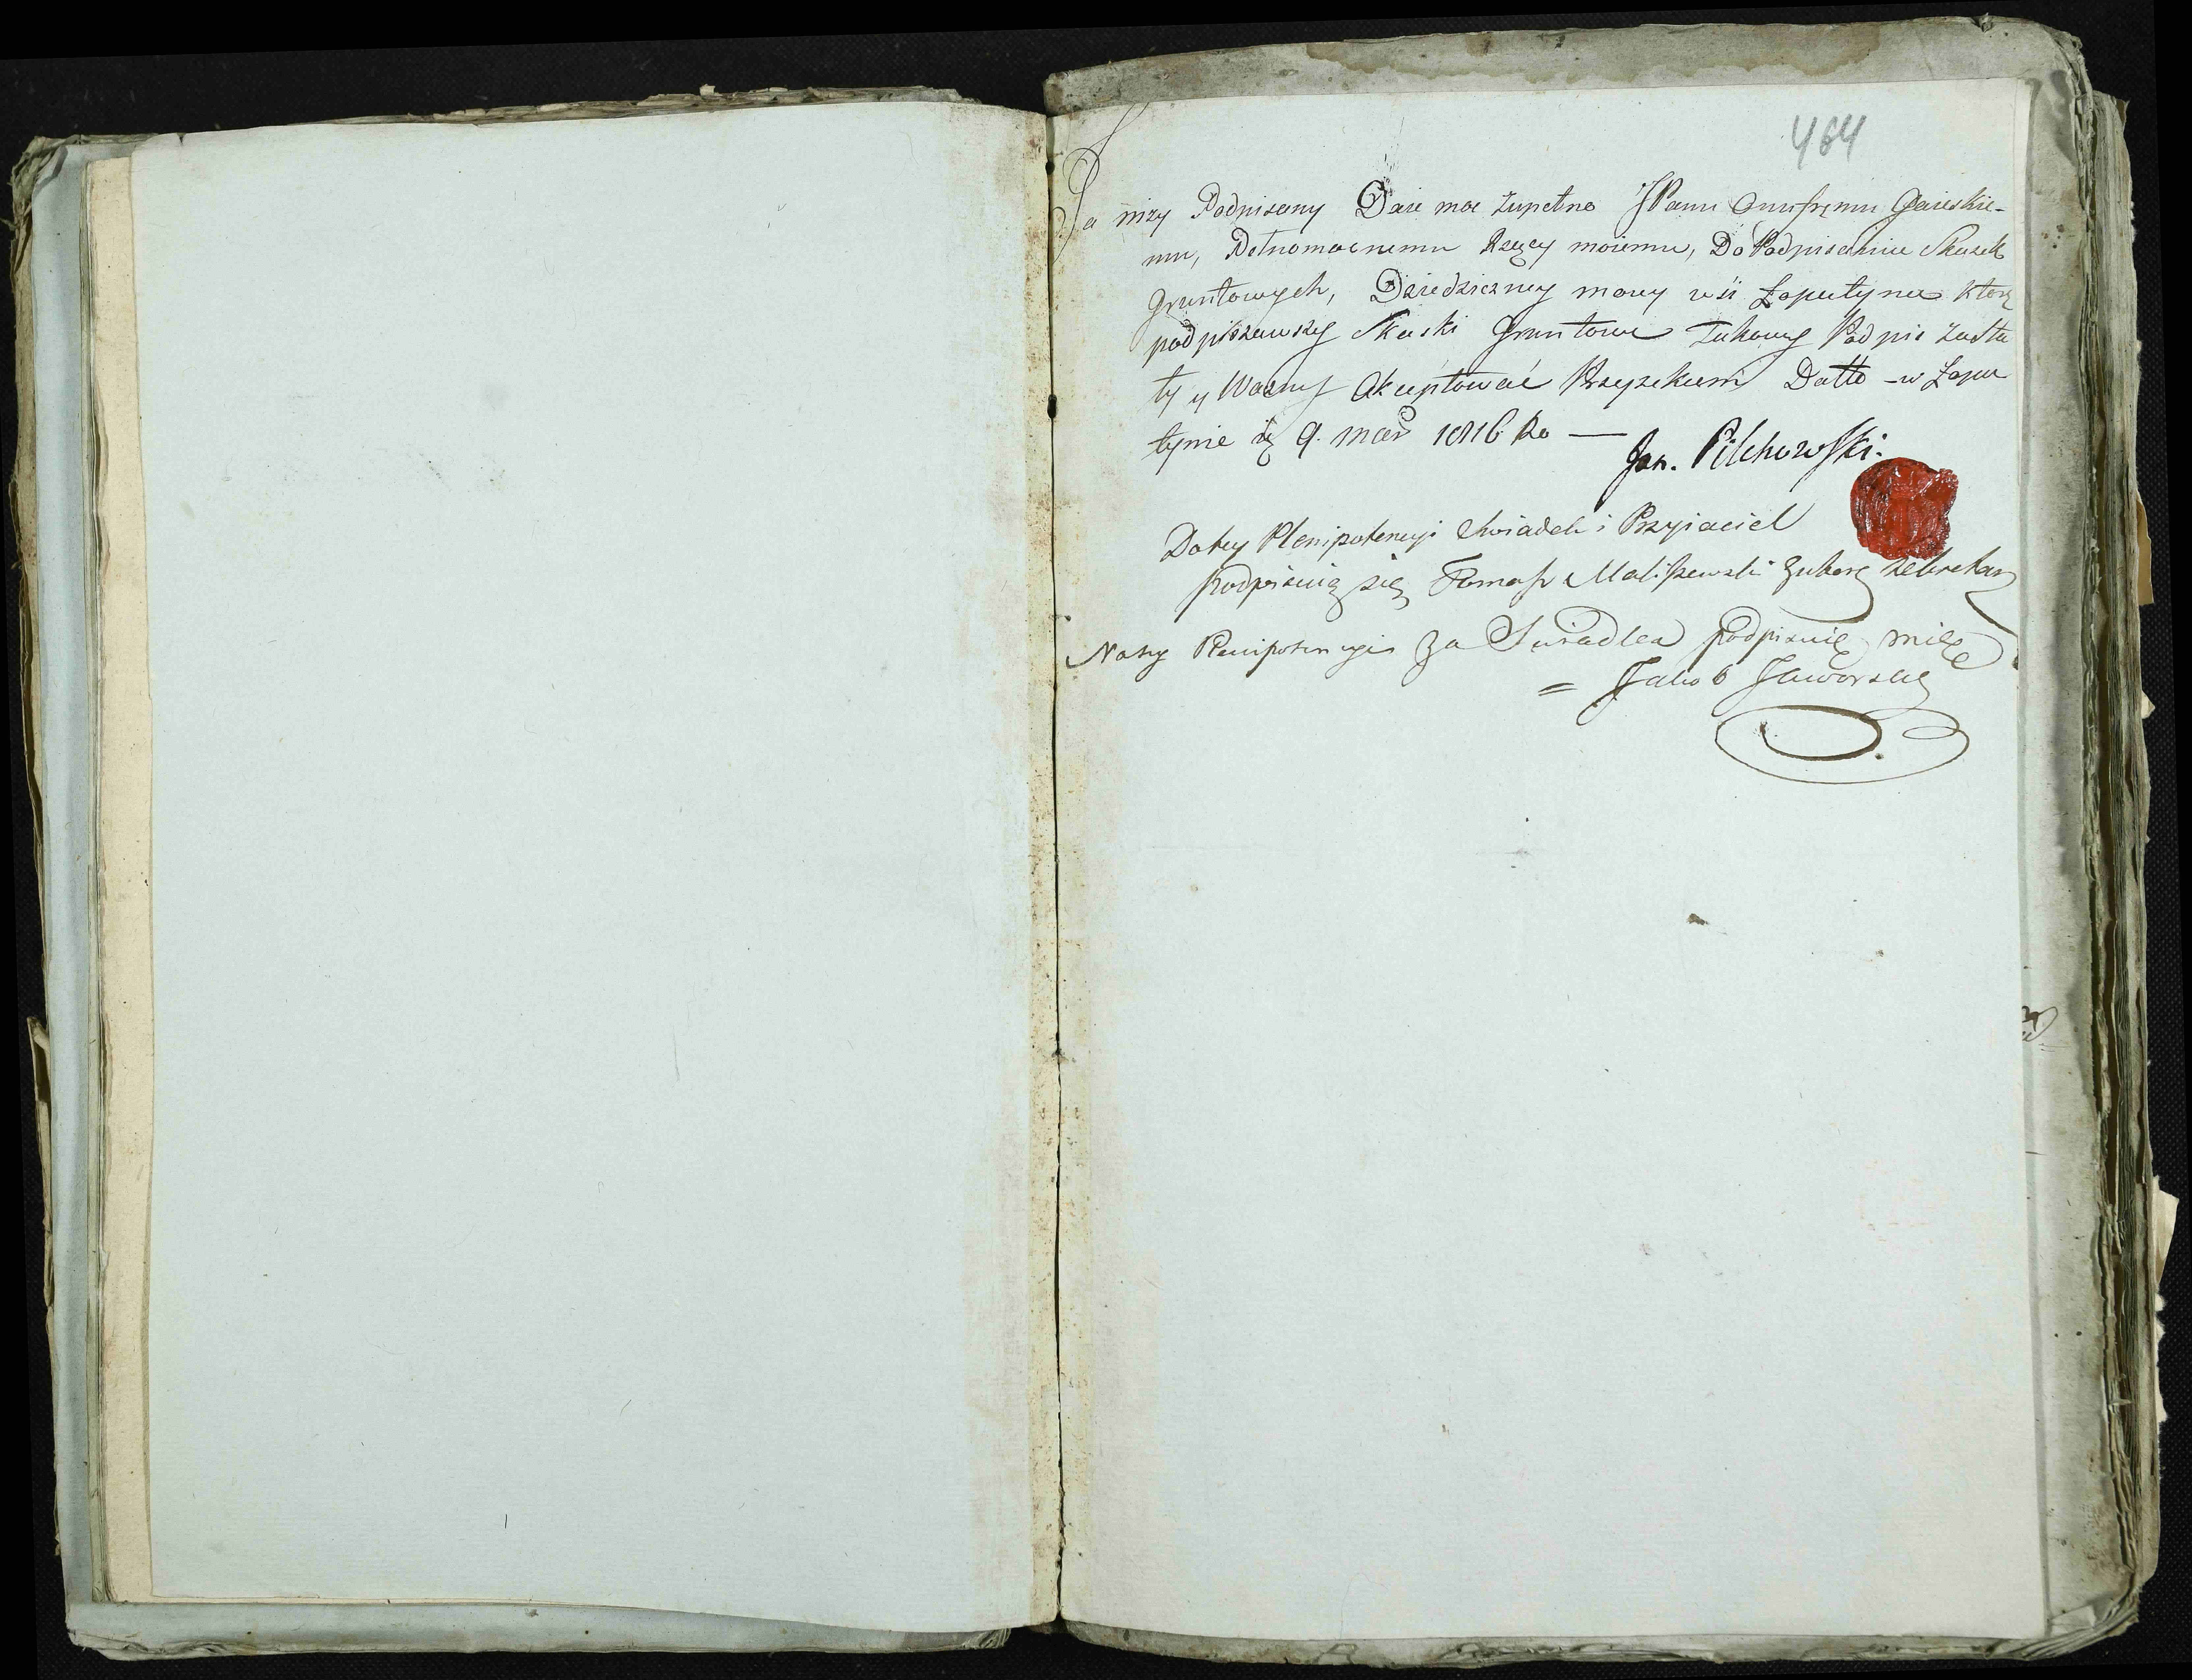 464
Ja niży Podpisany Daie moc zupełno JPanu Onufremu Gaieskie-
mu, Pełnomocnemu Rządcy moiemu, Do Podpisaniu Skazek
Gruntowych, Dziedziczney moiey wsi Łaputyna który
podpisawszy Skaski Gruntowe takowy Podpis za sta
ły y Ważny Akceptować Przyrzekam Datto - w Łapu
tynie 9. mar 1816 Ro —
Jan. Pilchowski.
Do tey Plenipotencyi Swiadek i Przyiaciel
podpisuię się Tomasz Maliszewski Sekretarz
Na tey Plenipotencyi za Swiadka podpisuię mie
= Jakob Jaworski